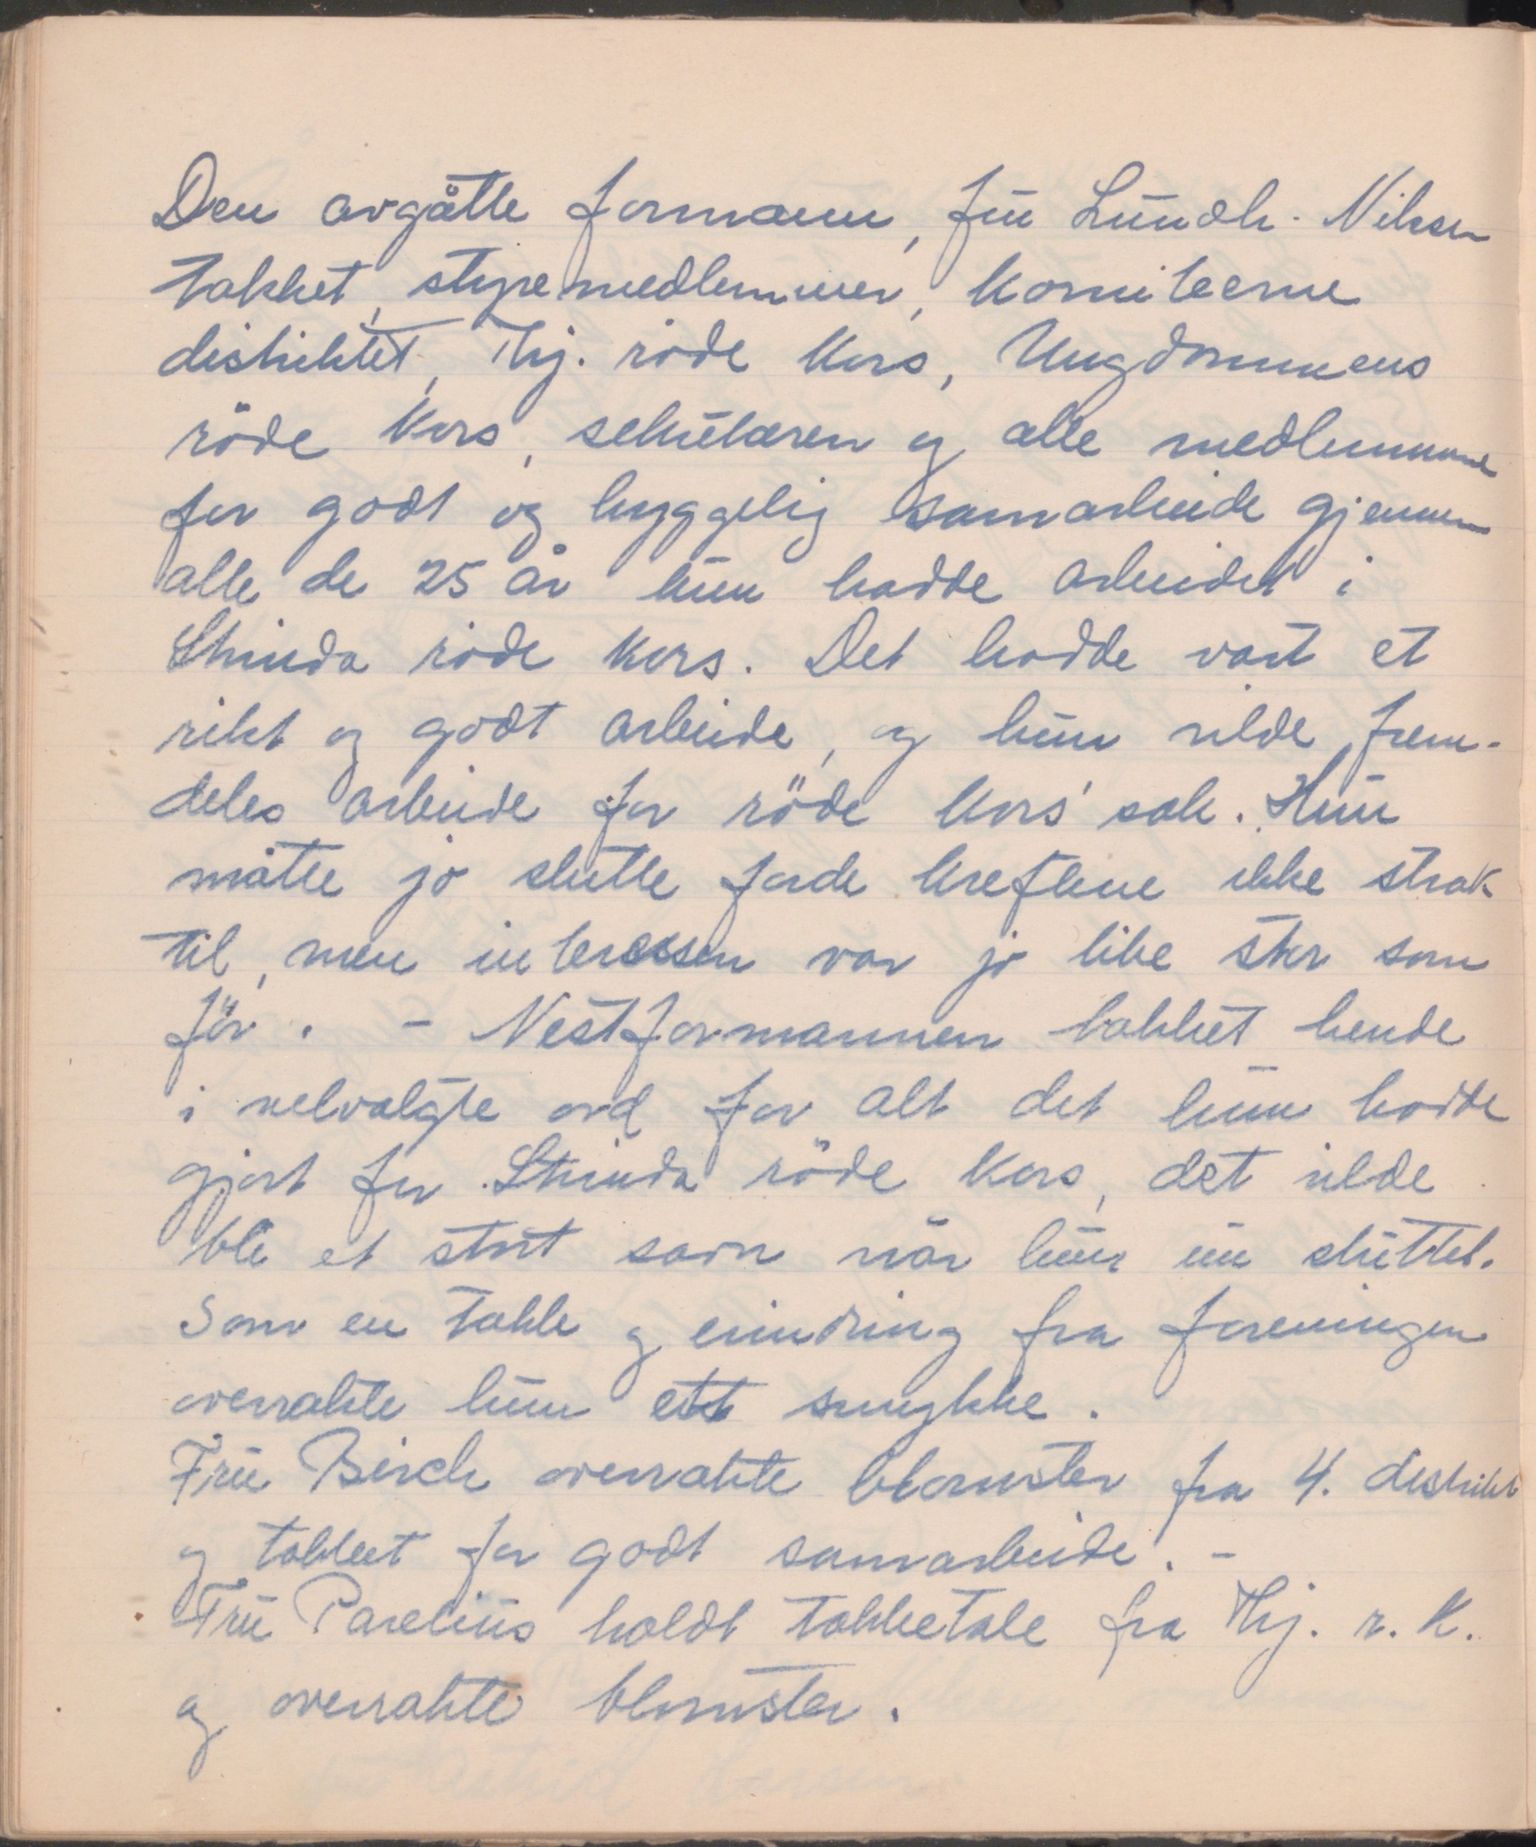 Den avgåtte formann, fru Lundh-Nilsen
takket, styremedlemmer, komiteerne
distriktet, Thj. röde Kors, Ungdommens
röde Kors, sekretæren og alle medlemmene
for godt og hyggelig samarbeide gjennem
alle de 25 år hun hadde arbeidet i
Strinda röde Kors. Det hadde vært et
rikt og godt arbeide, og hun vilde frem-
deles arbeide for röde Kors' sak. Hun
måtte jo slutte fordi kreftene ikke strak
til, men interessen var jo like stor som
för. - Nestformannen takket hende
i velvalgte ord for alt det hun hadde
gjort for Strinda röde Kors, det vilde
bli et stort savn når hun nu sluttet.
Som en takk og erindring fra foreningen
overrakte hun ett smykke.
Fru Birch overrakte blomster fra 4. distrikt
og takket for godt samarbeide. -
Fru Parelius holdt takketale fra Thj. r. K.
og overrakte blomster.